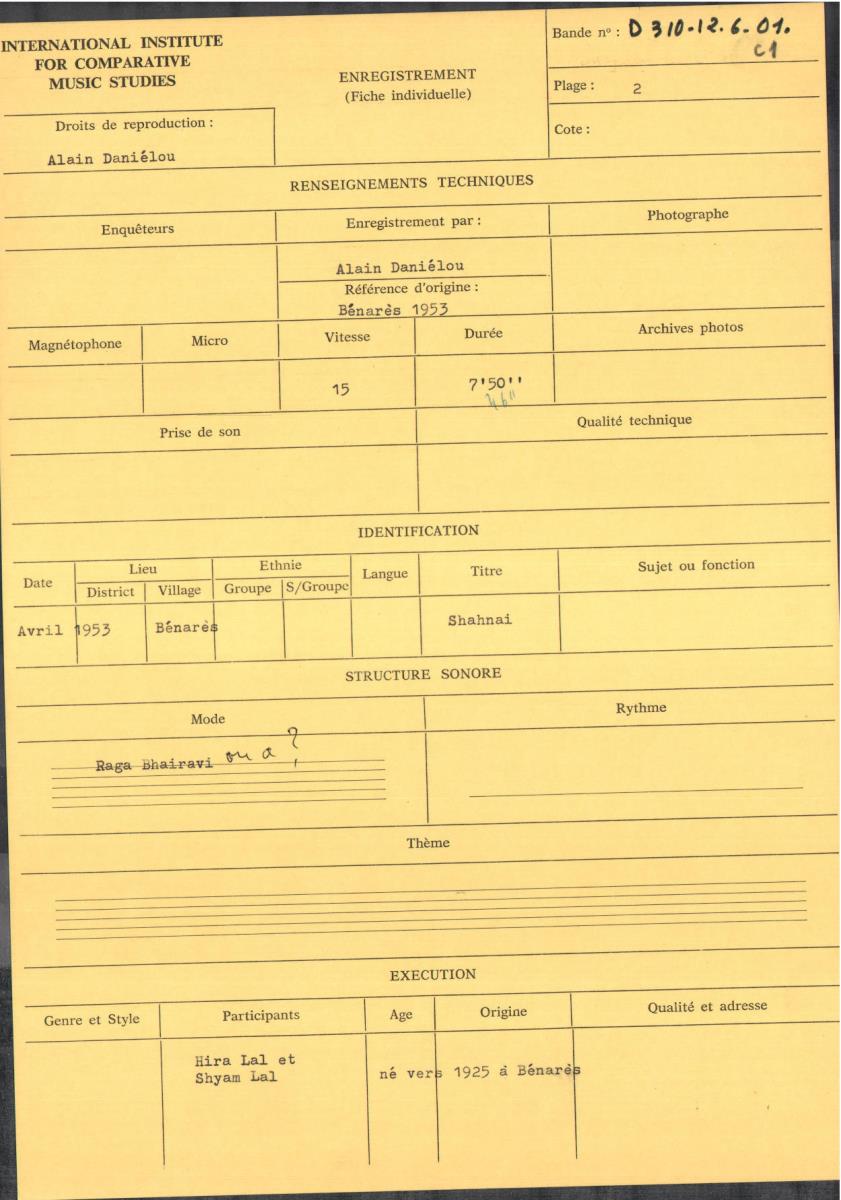 INTERNATIONAL INSTITUTE
FOR COMPARATIVE
MUSIC STUDIES
Droits de reproduction :
Alain Daniélou
ENREGISTREMENT
(Fiche individuelle)
Bande nº : D 310-12.6.01.
C1
Plage : 2
Cote :
RENSEIGNEMENTS TECHNIQUES
Enquêteurs
Enregistrement par :
Photographe
Alain Daniélou
Référence d'origine :
Bénarès 1953
Magnétophone Micro Vitesse Durée Archives photos
15 7'50''
46"
Prise de son Qualité technique
IDENTIFICATION
Date Lieu Ethnie Langue Titre Sujet ou fonction
District Village Groupe S/Groupe
Avril 1953 Bénarès Shahnai
STRUCTURE SONORE
Mode Rythme
Raga Bhairavi ou a ?
Thème
EXECUTION
Genre et Style Participants Age Origine Qualité et adresse
Hira Lal et
Shyam Lal né vers 1925 à Bénarès